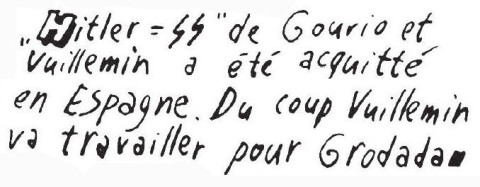 „Hitler = SS" de Gourio et
Vuillemin a été acquitté
en Espagne. Du coup Vuillemin
va travailler pour Grodada